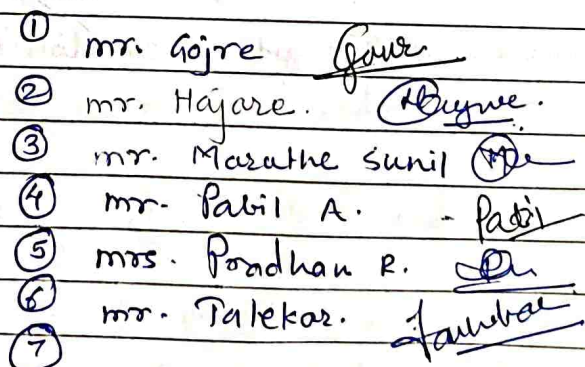 ① mr. Gojre
② mr. Hajare.
③ mr. Marathe Sunil
④ mr. Patil A. - Patil
⑤ mrs. Pradhan R.
⑥ mr. Talekar.
⑦